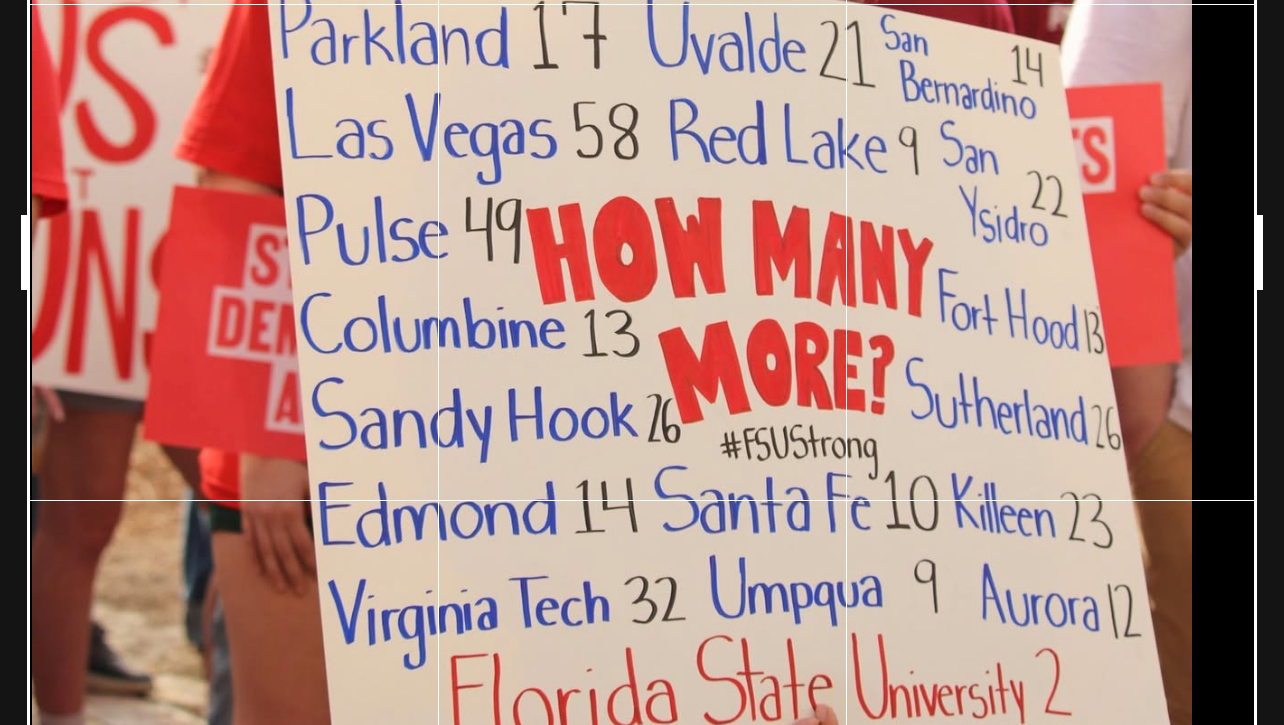 Parkland 17 Uvalde 21 San Bernardino 14
Las Vegas 58 Red Lake 9 San Ysidro 22
Pulse 49 HOW MANY
Columbine 13 MORE? Fort Hood 13
Sandy Hook 26 Sutherland 26
#FSUStrong
Edmond 14 Santa Fe 10 Killeen 23
Virginia Tech 32 Umpqua 9 Aurora 12
Florida State University 2